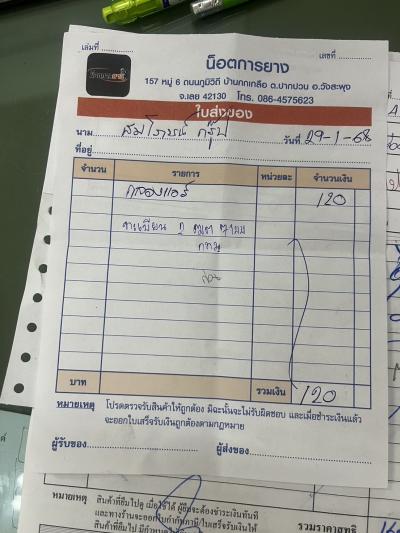 เล่มที่
เลขที่
น็อตการยาง
157 หมู่ 6 ถนนภูมิวิถี บ้านกกเกลือ ต.ปากปวน อ.วังสะพุง
จ.เลย 42130 โทร. 086-4575623
ใบส่งของ
นาม กรุ๊ป วันที่ 29-1-68
ที่อยู่
จำนวน รายการ หน่วยละ จำนวนเงิน
120
ทะเบียน 2
กทม
บาท รวมเงิน 120
หมายเหตุ โปรดตรวจรับสินค้าให้ถูกต้อง มิฉะนั้นจะไม่รับผิดชอบ และเมื่อชำระเงินแล้ว
จะออกใบเสร็จรับเงินถูกต้องตามกฎหมาย
ผู้รับของ ผู้ส่งของ
หมายเหตุ สินค้าที่ยืมไปดู เมื่อใช้ได้ ผู้ยืมจะต้องชำระเงินทันที
และทางร้านจะออกใบกำกับภาษี/ใบเสร็จรับเงินให้
สินค้าที่ยืมไป มีกำหนด
รวมราคาสุทธิ